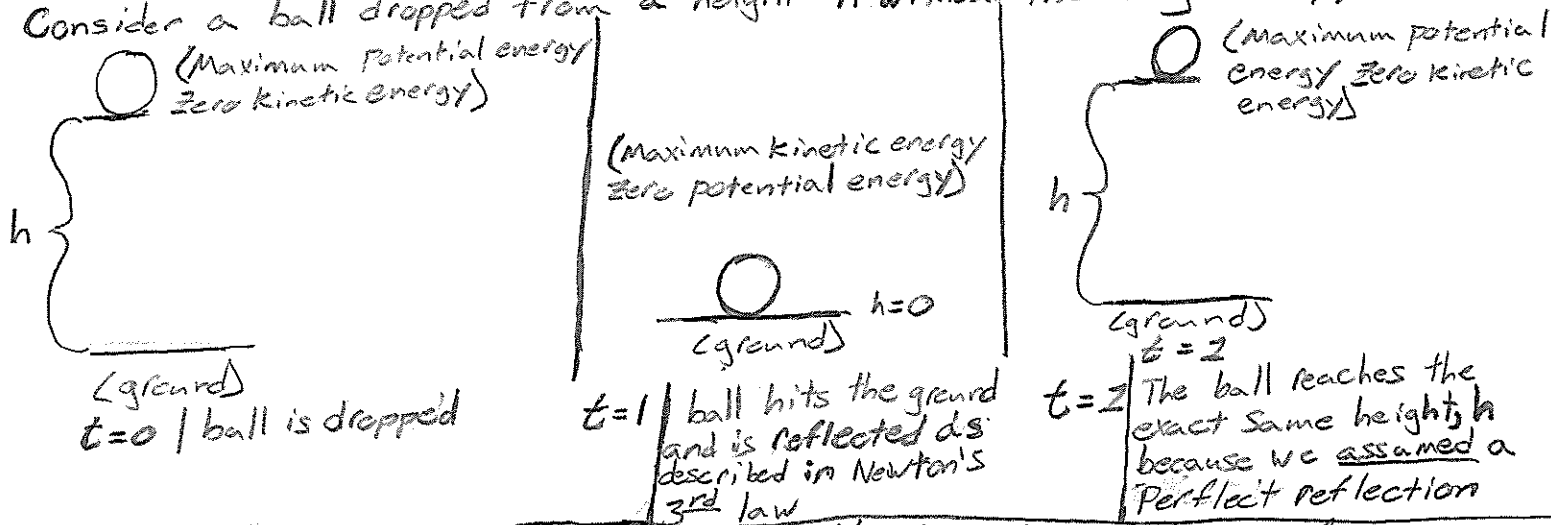 Consider a ball dropped from a height
(Maximum Potential energy
Zero kinetic energy)
h
(ground)
t=0 | ball is dropped
(Maximum kinetic energy
Zero potential energy)
h=0
(ground)
t=1 | ball hits the ground
and is reflected as
described in Newton's
3rd law
(Maximum potential
energy zero kinetic
energy)
h
(ground)
t=2
t=2 | The ball reaches the
exact same height, h
because we assumed a
Perflect reflection